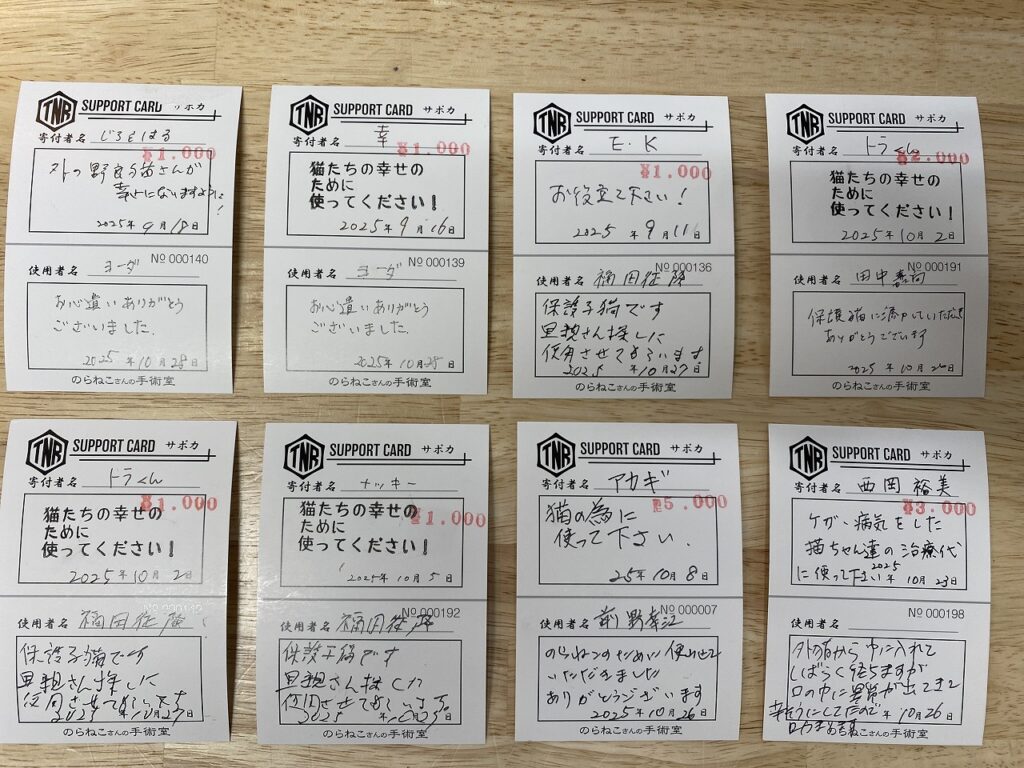 TNR SUPPORT CARD サポカ
寄付者名 じろとはる
¥1.000
外の野良猫さんが
幸せになりますように!
2025年 9月18日
No 000140
使用者名 ヨーダ
お心遣いありがとう
ございました.
2025年10月28日
のらねこさんの手術室
TNR SUPPORT CARD サポカ
寄付者名 幸
¥1.000
猫たちの幸せの
ために
使ってください!
2025年9月16日
No 000139
使用者名 ヨーダ
お心遣いありがとう
ございました.
2025年10月28日
のらねこさんの手術室
TNR SUPPORT CARD サポカ
寄付者名 E.K
¥1.000
お役立て下さい!
2025年9月11日
No 000136
使用者名 福田
保護子猫です
里親さん探しに
使用させてもらいます
2025年10月27日
のらねこさんの手術室
TNR SUPPORT CARD サポカ
寄付者名 トラくん
¥2.000
猫たちの幸せの
ために
使ってください!
2025年10月2日
No 000191
使用者名 田中
ありがとうございます
2025年10月
のらねこさんの手術室
TNR SUPPORT CARD サポカ
寄付者名 トラくん
¥1.000
猫たちの幸せの
ために
使ってください!
2025年10月2日
使用者名 福田
保護子猫です
里親さん探しに
使用させてもらいます
2025年10月27日
TNR SUPPORT CARD サポカ
寄付者名 ナッキー
¥1.000
猫たちの幸せの
ために
使ってください!
2025年10月5日
No 000192
使用者名 福田
保護子猫です
里親さん探しに
使用させてもらいます
2025年10月25日
のらねこさんの手術室
TNR SUPPORT CARD サポカ
寄付者名 アカギ
¥5.000
猫の為に
使って下さい.
25年10月8日
No 000007
使用者名 前野幸江
のらねこのために使わせて
いただきました
ありがとうございます
2025年10月26日
のらねこさんの手術室
TNR SUPPORT CARD サポカ
寄付者名 西岡裕美
¥3.000
ケガ、病気をした
猫ちゃん達の治療代
に使って下さい
2025年10月23日
No 000198
使用者名
外猫から中に入れて
しばらく経ちますが
口の中に異常が出てきて
辛そうにしてたので
10月26日
さんの手術室